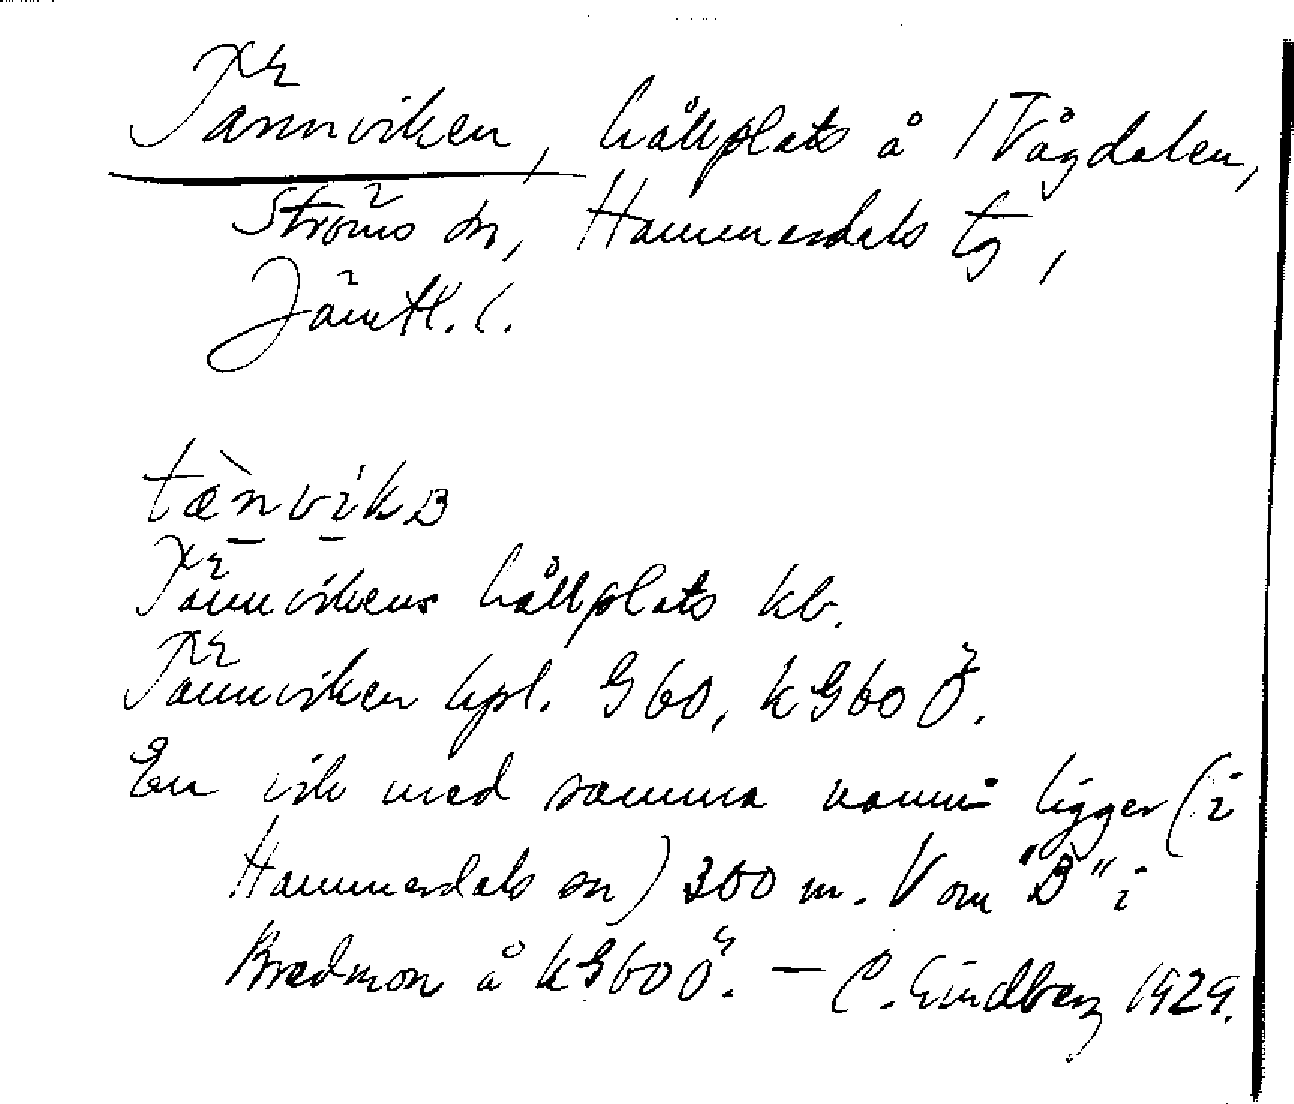 Tännviken, hållplats å 1 Vågdalen,
Ströms sn, Hammerdals tg,
Jämtl. l.
tæ̀nvikɐ
Tännvikens hållplats kb.
Tännviken hpl. G60, kG60Ö.
En vik med samma namn ligger (i
Hammerdals sn) 300 m. V om "B" i
Bredmon å kG60Ö. — C. Lindberg 1929.